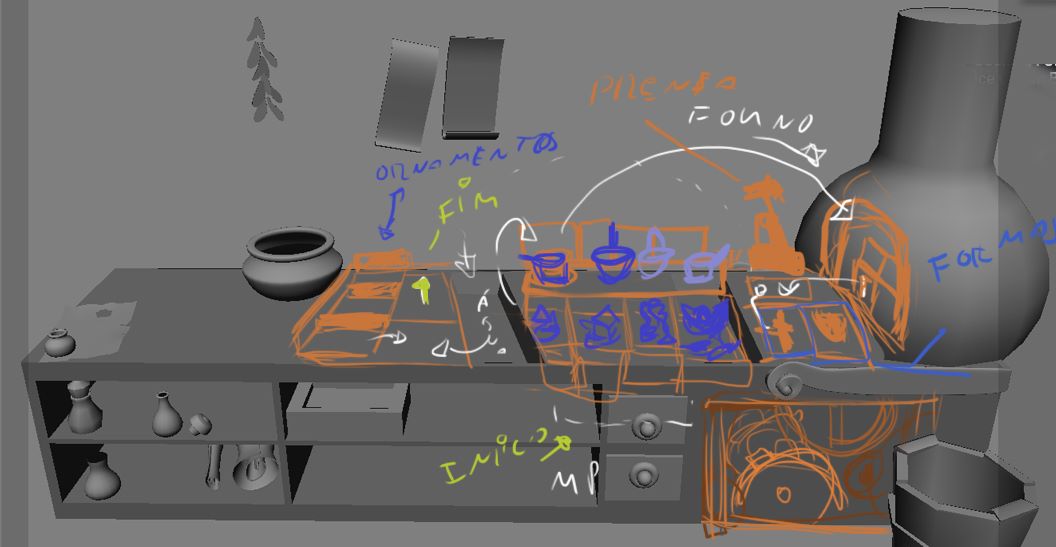 PRENSA
FORNO
ORNAMENTOS
FIM
FORMAS
INÍCIO
MP